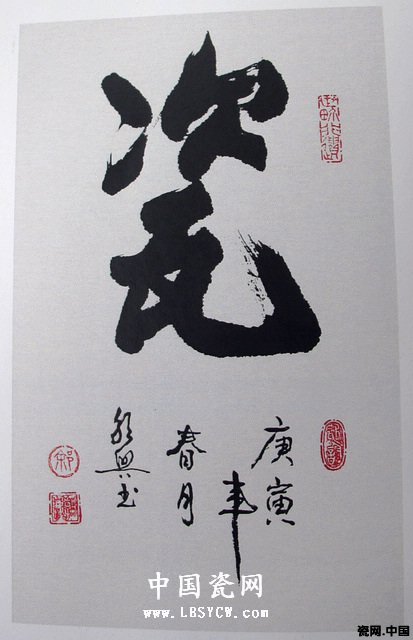 瓷
庚寅年
春月
興书
中国瓷网
www.LBSYCW.com
瓷网.中国